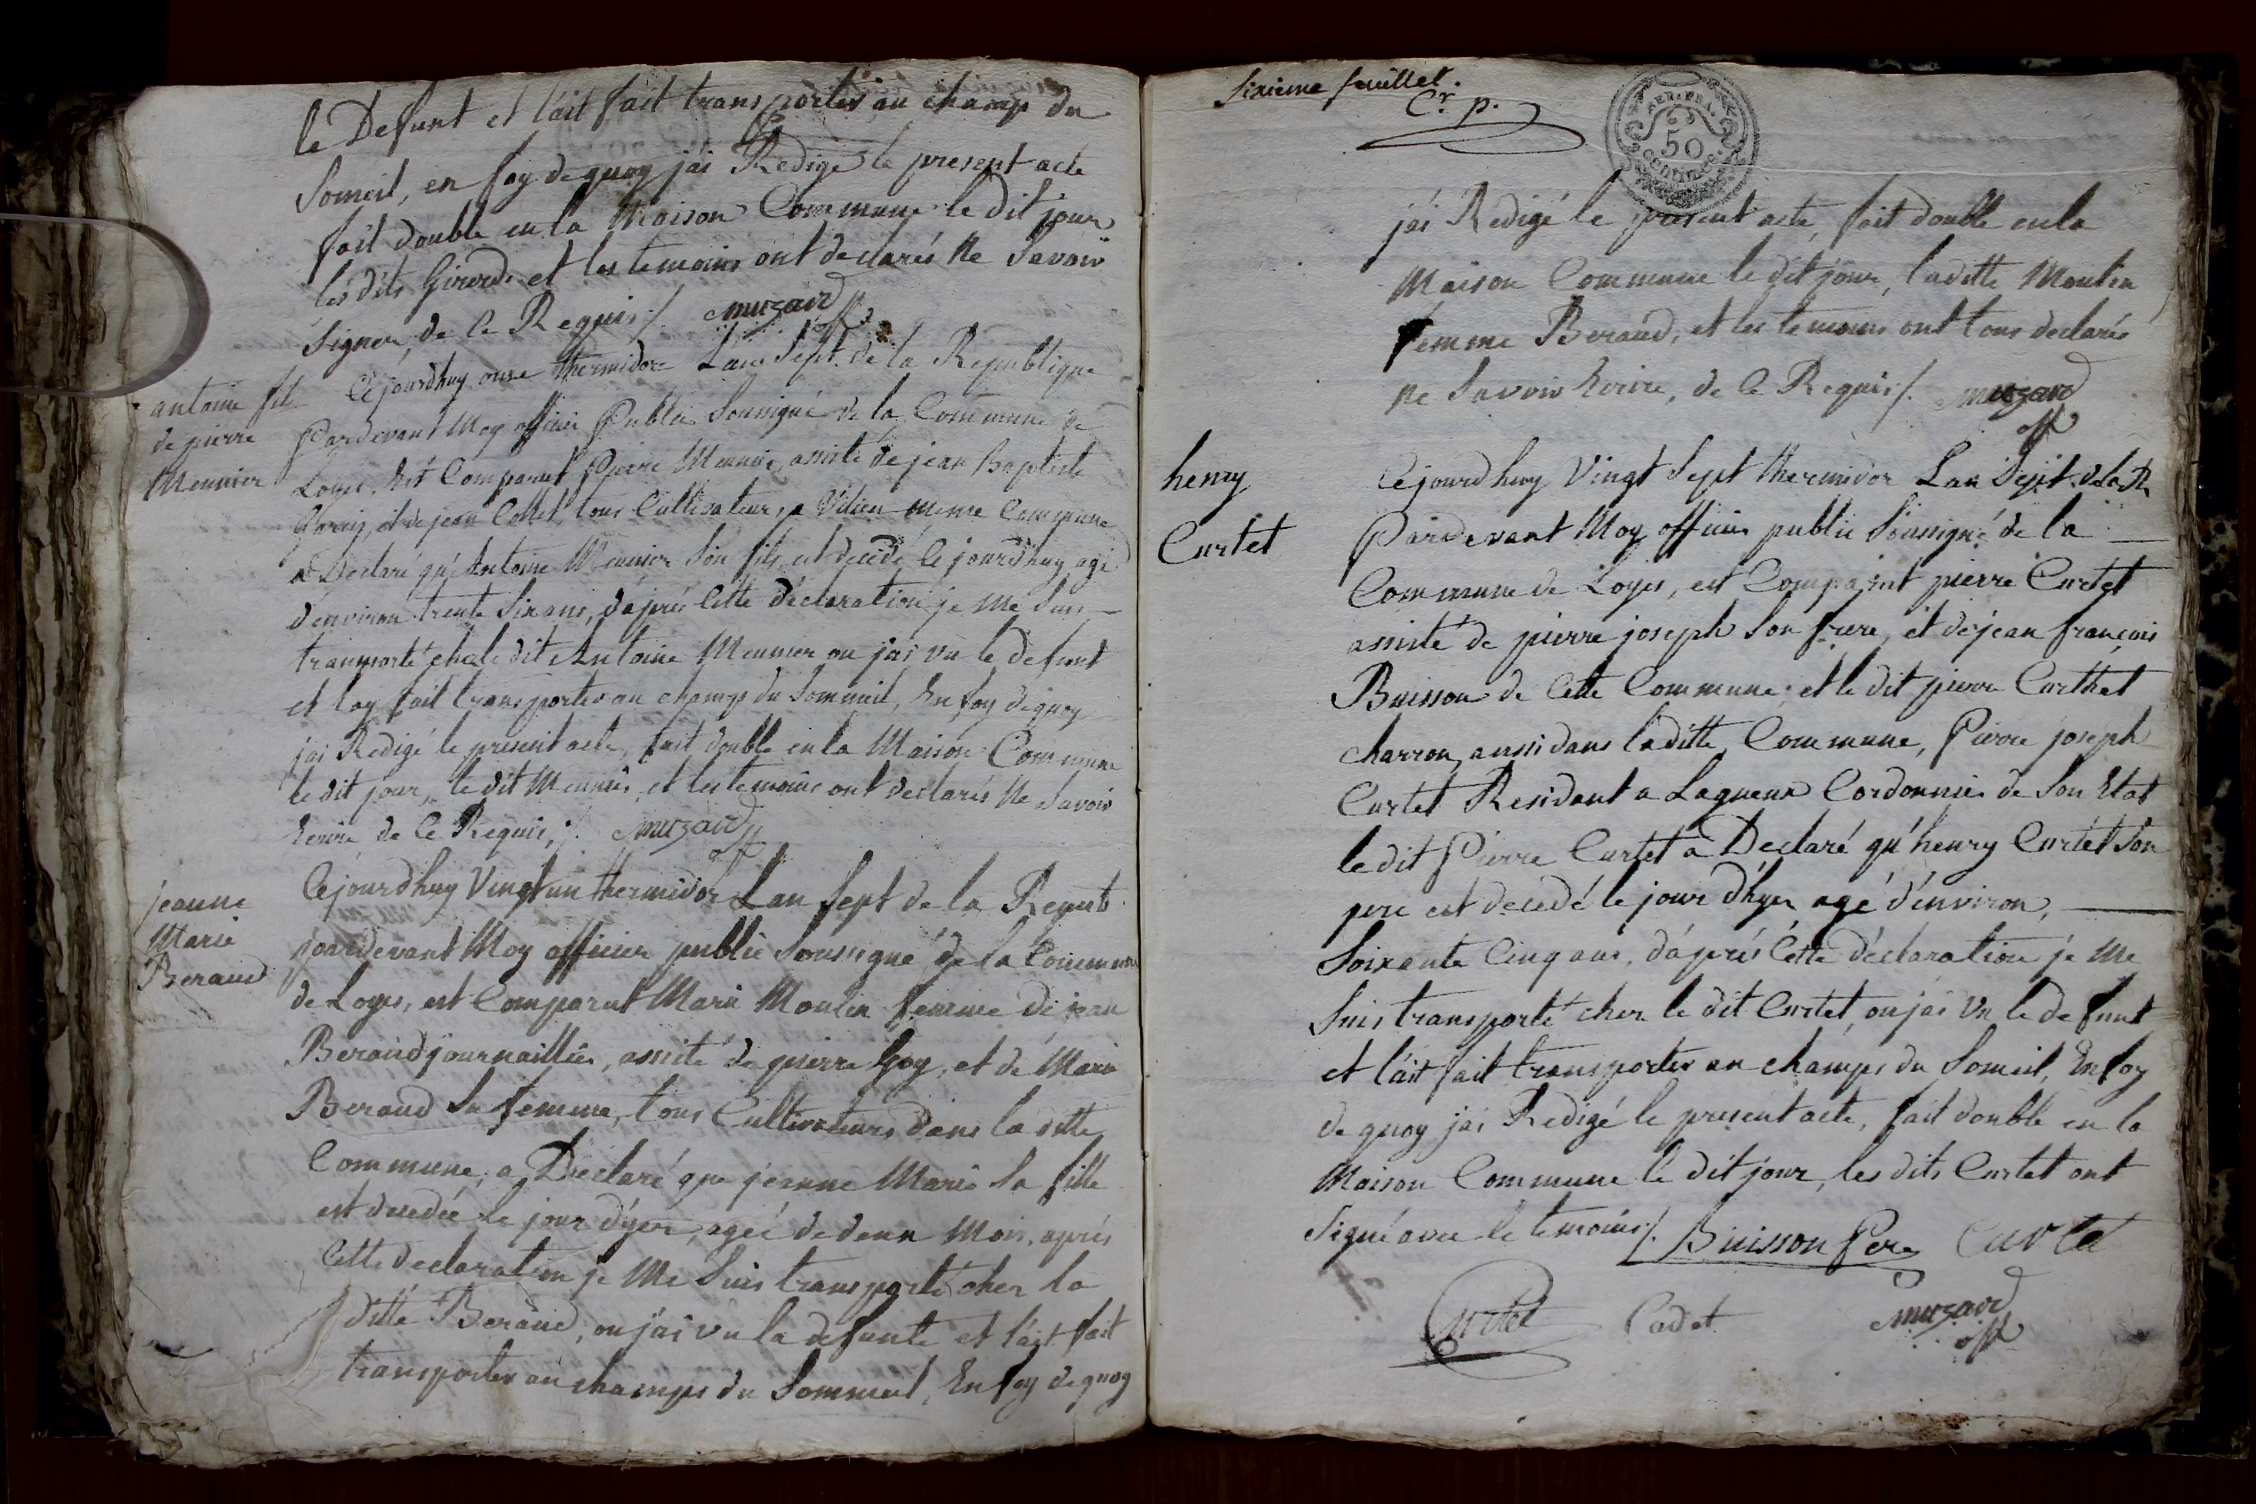 le Defunt et l'ait fait transporter au champ du
Someil, en foy de quoy j'ai Redigé le present acte
fait double en la Maison Commune le dit jour
les dits Girerd et les temoins ont declarés Ne Savoir
Signer, de Ce Requis /. muzard off
antoine fils
de pierre
Meunier
Cejourdhuy onze thermidor Lan Sept de la Republique
Pardevant Moy officier Public Sousigné de la Commune de
Loyes, Est Comparut Pierre Meunier, assisté de jean Baptiste
et de jean Collet, tous Cultivateurs a Vilieu meme Commune
a Declaré qu'Antoine Meunier Son fils, est decedé Cejourdhuy agé
d'environ trente Six ans, d'après Cette déclaration je Me Suis
transporté chez le dit Antoine Meunier ou j'ai vu le defunt
et l'ay fait transporter au champs du Sommeil, En foy de quoy
j'ai Redigé le present acte, fait double en la Maison Commune
le dit jour, le dit Meunier, et les temoins ont declarés Ne Savoir
Ecrire de Ce Requis, /. muzard off
jeanne
Marie
Beraud
Cejourdhuy Vingt un thermidor Lan Sept de la Repub
pardevant Moy officier public Soussigné de la Commune
de Loyes, est Comparut Marie Moulin femme de jean
Beraud journaillier, assisté de pierre Goy, et de Marie
Beraud Sa femme, tous Cultivateurs dans la ditte
Commune, a Declaré que jeanne Marie Sa fille
est decedée le jour d'yer, agée de deux Mois, après
Cette declaration je Me Suis transporté chez la
ditte Beraud, ou j'ai vu la defunte et l'ait fait
transporter au champs du Sommeil, En foy de quoy
Sixieme feuillet.
Cr. p.
50
centimes
j'ai Redigé le present acte, fait double en la
Maison Commune le dit jour, laditte Moulin
femme Beraud, et les temoins ont tous declarés
ne Savoir Ecrire, de Ce Requis /. muzard
off
henry
Curtet
Cejourdhuy Vingt Sept thermidor Lan Sept de la R
Pardevant Moy officier public Sousigné de la
Commune de Loyes, est Comparut pierre Curtet
assisté de pierre joseph Son frere, et de jean françois
Buisson de Cette Commune, et le dit pierre Curthet
charron, aussi dans laditte Commune, Pierre joseph
Curtet Residant a Lagneux Cordonnier de Son Etat
le dit Pierre Curtet a Declaré qu'henry Curtet Son
pere est decedé le jour d'hyer agé d'environ,
Soixante Cinq ans, d'après Cette déclaration je Me
Suis transporté chez le dit Curtet, ou j'ai vu le defunt
et l'ait fait transporter au champs du Someil, En foy
de quoy j'ai Redigé le present acte, fait double en la
Maison Commune le dit jour, les dits Curtet ont
Signé avec le temoins /. Buisson Pere Curtet
Curtet Cadet muzard
off